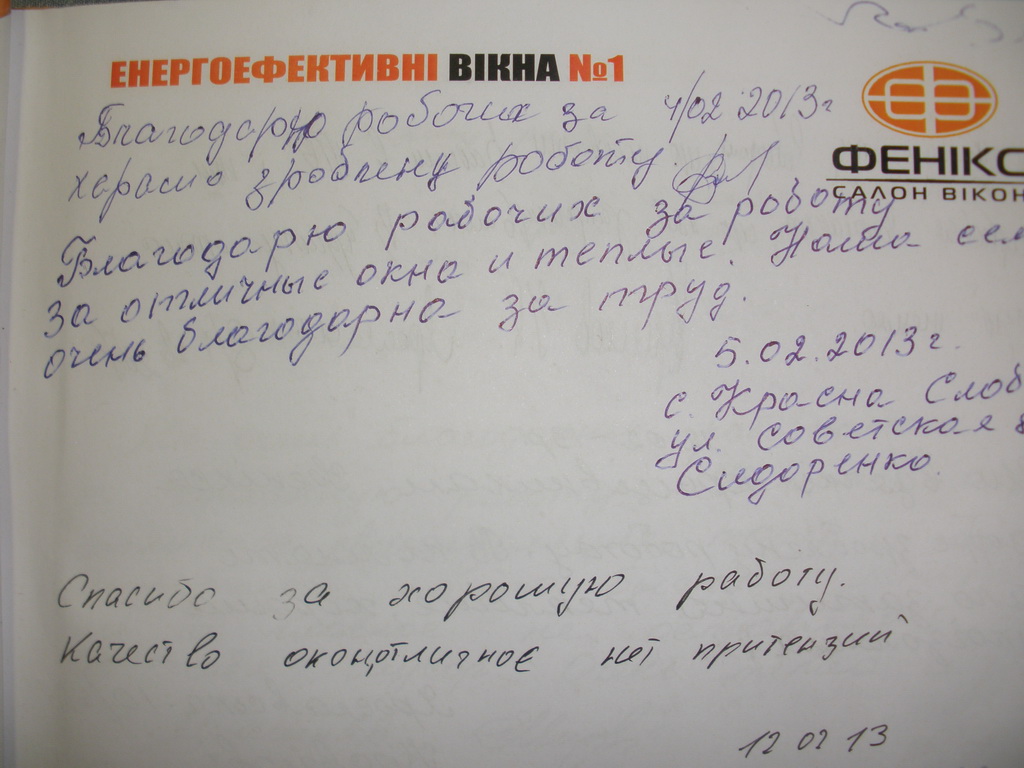 ЕНЕРГОЕФЕКТИВНІ ВІКНА №1
ФЕНІКС
САЛОН ВІКОН
Благодарю робочих за 4/02 2013г
харасшо зроблену роботу.
Благодарю рабочих за роботу
За отличные окна и теплые. Наша сем
очень благодарна за труд.
5.02.2013г.
с. Красна Слоб
ул. Советская
Сидоренко.
Спасибо за хорошую работу.
Качество окон отличное нет притензий
12 02 13